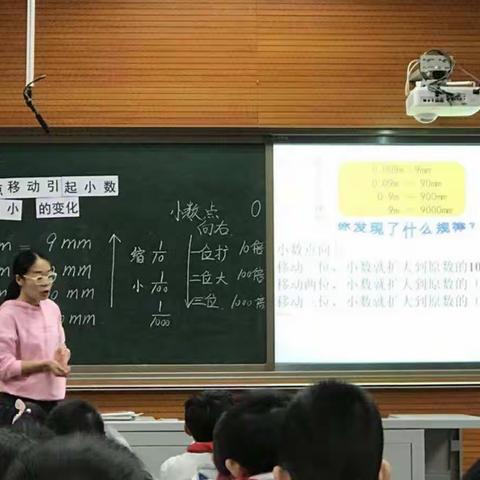 点移动引起小数
小 的变化
m = 9 mm
mm
mm
mm
缩 1/10
小 1/100
1/1000
小数点 0
向右
一位扩 10倍
二位大 100倍
三位 1000倍
0.009m = 9mm
0.09m = 90mm
0.9m = 900mm
9m = 9000mm
你发现了什么规律?
小数点向
移动一位,小数就扩大到原数的10
移动两位,小数就扩大到原数的(
移动三位,小数就扩大到原数的(